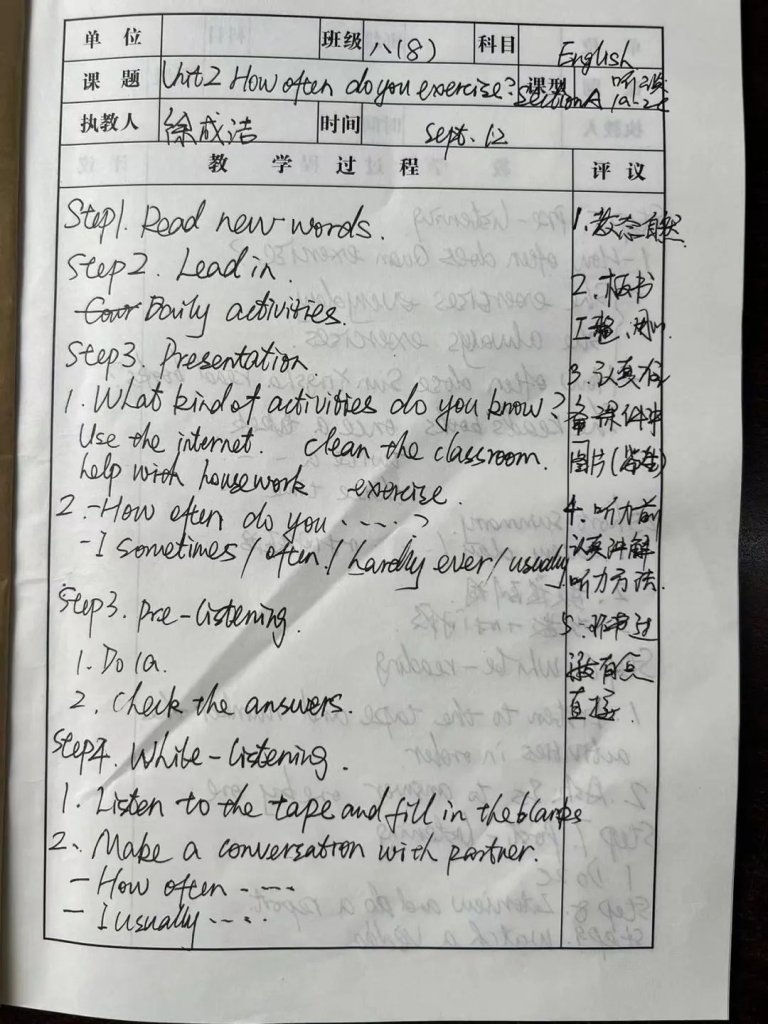 单 位 班级 八(8) 科目 English
课 题 Unit 2 How often do you exercise? 课型 听说
Section A 1a-2c
执教人 徐成洁 时间 Sept. 12
教 学 过 程 评 议
Step1. Read new words.
Step2. Lead in.
Daily activities.
Step3. Presentation.
1. What kind of activities do you know?
Use the internet. clean the classroom.
help with housework exercise.
2. -How often do you ·····?
- I sometimes / often / hardly ever / usually
Step3. Pre-listening.
1. Do 1a.
2. Check the answers.
Step4. While-listening.
1. Listen to the tape and fill in the blanks
2. Make a conversation with partner.
- How often ····
- I usually ····
1. 教态自然
2. 板书
工整
3. 认真准
备课件中
图片
4. 听力前
认真讲解
听力方法.
5. 环节过
渡有点
直接.